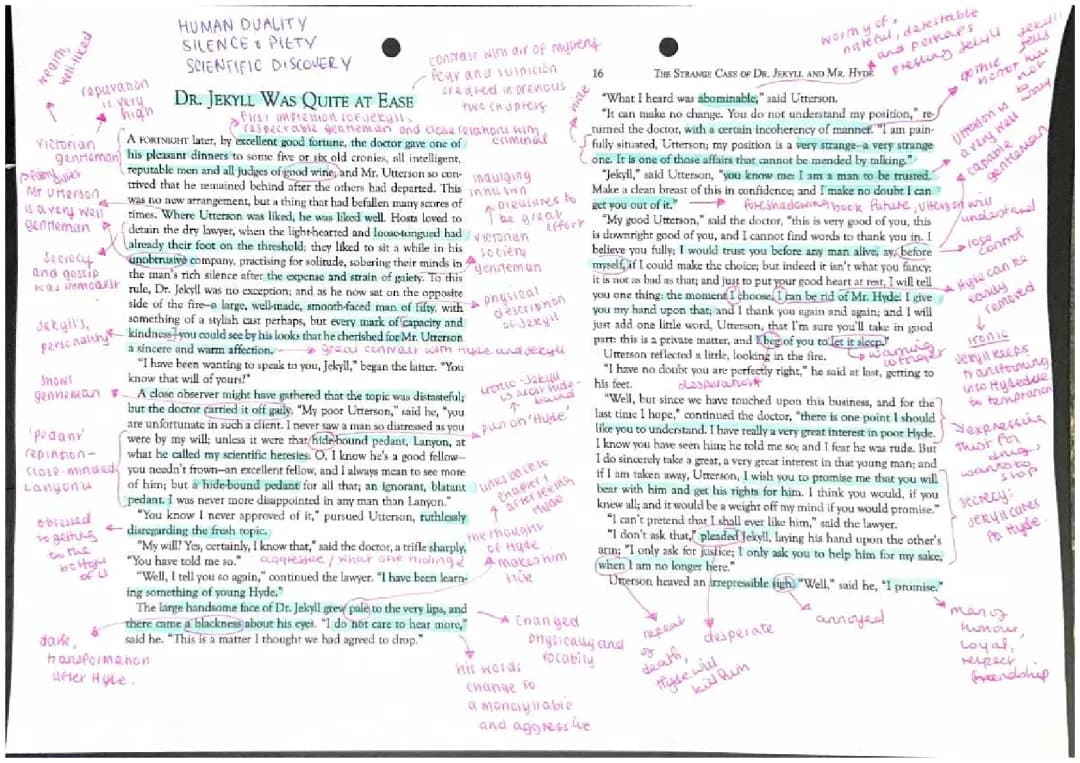 HUMAN DUALITY
SILENCE & PIETY
SCIENTIFIC DISCOVERY
contrast with air of mystery
fear and suspicion
created in previous
two chapters
wealthy,
well-liked
reputation
is very
high
DR. JEKYLL WAS QUITE AT EASE
First impression of Jekyll,
respectable gentleman and close relations with
criminal
Victorian
gentleman
Mr Utterson
is a very well
gentleman
secrecy
and gossip
was immodest
Jekyll's,
personality
shows
gentleman
'pedant'
repetition-
close-minded
Lanyon's
obsessed
to getting
to the
bottom
of it
dark,
transformation
after Hyde.
A FORTNIGHT later, by excellent good fortune, the doctor gave one of
his pleasant dinners to some five or six old cronies, all intelligent,
reputable men and all judges of good wine; and Mr. Utterson so con-
trived that he remained behind after the others had departed. This
was no new arrangement, but a thing that had befallen many scores of
times. Where Utterson was liked, he was liked well. Hosts loved to
detain the dry lawyer, when the light-hearted and loose-tongued had
already their foot on the threshold; they liked to sit a while in his
unobtrusive company, practising for solitude, sobering their minds in
the man's rich silence after the expense and strain of gaiety. To this
rule, Dr. Jekyll was no exception; and as he now sat on the opposite
side of the fire—a large, well-made, smooth-faced man of fifty, with
something of a stylish cast perhaps, but every mark of capacity and
kindness—you could see by his looks that he cherished for Mr. Utterson
a sincere and warm affection.
great contrast with Hyde and Jekyll
"I have been wanting to speak to you, Jekyll," began the latter. "You
know that will of yours?"
A close observer might have gathered that the topic was distasteful;
but the doctor carried it off gaily. "My poor Utterson," said he, "you
are unfortunate in such a client. I never saw a man so distressed as you
were by my will; unless it were that hide-bound pedant, Lanyon, at
what he called my scientific heresies. O, I know he's a good fellow—
you needn't frown—an excellent fellow, and I always mean to see more
of him; but a hide-bound pedant for all that; an ignorant, blatant
pedant. I was never more disappointed in any man than Lanyon."
"You know I never approved of it," pursued Utterson, ruthlessly
disregarding the fresh topic.
"My will? Yes, certainly, I know that," said the doctor, a trifle sharply.
"You have told me so."
aggressive / what one hiding?
"Well, I tell you so again," continued the lawyer. "I have been learn-
ing something of young Hyde."
The large handsome face of Dr. Jekyll grew pale to the very lips, and
there came a blackness about his eyes. "I do not care to hear more,"
said he. "This is a matter I thought we had agreed to drop."
indulging
in his own
pleasures to
be great
effort
Victorian
society
gentleman
physical
description
of Jekyll
ironic - Jekyll
is
hide-
bound
pun on 'Hyde'
links back to
chapter 1
after seeing
Hyde
the thought
of Hyde
makes him
sick
changed
physically and
vocally
his words
change to
a monosyllable
and aggressive
16
THE STRANGE CASE OF DR. JEKYLL AND MR. HYDE
worthy of,
hateful, detestable
and perhaps
pressing Jekyll
hide
"What I heard was abominable," said Utterson.
"It can make no change. You do not understand my position," re-
turned the doctor, with a certain incoherency of manner. "I am pain-
fully situated, Utterson; my position is a very strange—a very strange
one. It is one of those affairs that cannot be mended by talking."
"Jekyll," said Utterson, "you know me: I am a man to be trusted.
Make a clean breast of this in confidence; and I make no doubt I can
get you out of it."
foreshadowing book future, Utterson will
understand
"My good Utterson," said the doctor, "this is very good of you, this
is downright good of you, and I cannot find words to thank you in. I
believe you fully; I would trust you before any man alive, ay, before
myself, if I could make the choice; but indeed it isn't what you fancy;
it is not as bad as that; and just to put your good heart at rest, I will tell
you one thing: the moment I choose, I can be rid of Mr. Hyde. I give
you my hand upon that; and I thank you again and again; and I will
just add one little word, Utterson, that I'm sure you'll take in good
part: this is a private matter, and I beg of you to let it sleep."
warning
Utterson reflected a little, looking in the fire.
"I have no doubt you are perfectly right," he said at last, getting to
his feet.
desperation
"Well, but since we have touched upon this business, and for the
last time I hope," continued the doctor, "there is one point I should
like you to understand. I have really a very great interest in poor Hyde.
I know you have seen him; he told me so; and I fear he was rude. But
I do sincerely take a great, a very great interest in that young man; and
if I am taken away, Utterson, I wish you to promise me that you will
bear with him and get his rights for him. I think you would, if you
knew all; and it would be a weight off my mind if you would promise."
"I can't pretend that I shall ever like him," said the lawyer.
"I don't ask that," pleaded Jekyll, laying his hand upon the other's
arm; "I only ask for justice; I only ask you to help him for my sake,
when I am no longer here."
Utterson heaved an irrepressible sigh. "Well," said he, "I promise."
gothic
Utterson is
a very well
capable
gentleman
lose
control
Hyde can be
easily
removed
ironic
Jekyll keeps
transforming
into Hyde due
to temptation
expressing
trust for
drug,
wants to
stop
secrecy:
Jekyll cares
for Hyde.
repeat
of
death,
Hyde will
kill him
desperate
annoyed
man of
honour,
loyal,
respect
friendship